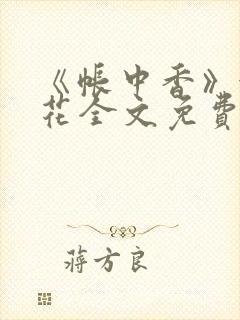 《帐中香》
花全文免費
蒋方良